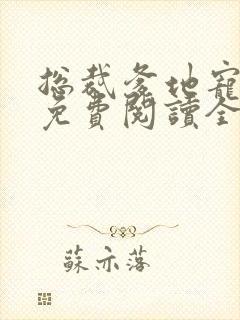 總裁爹地寵
免費閱讀全
蘇亦落